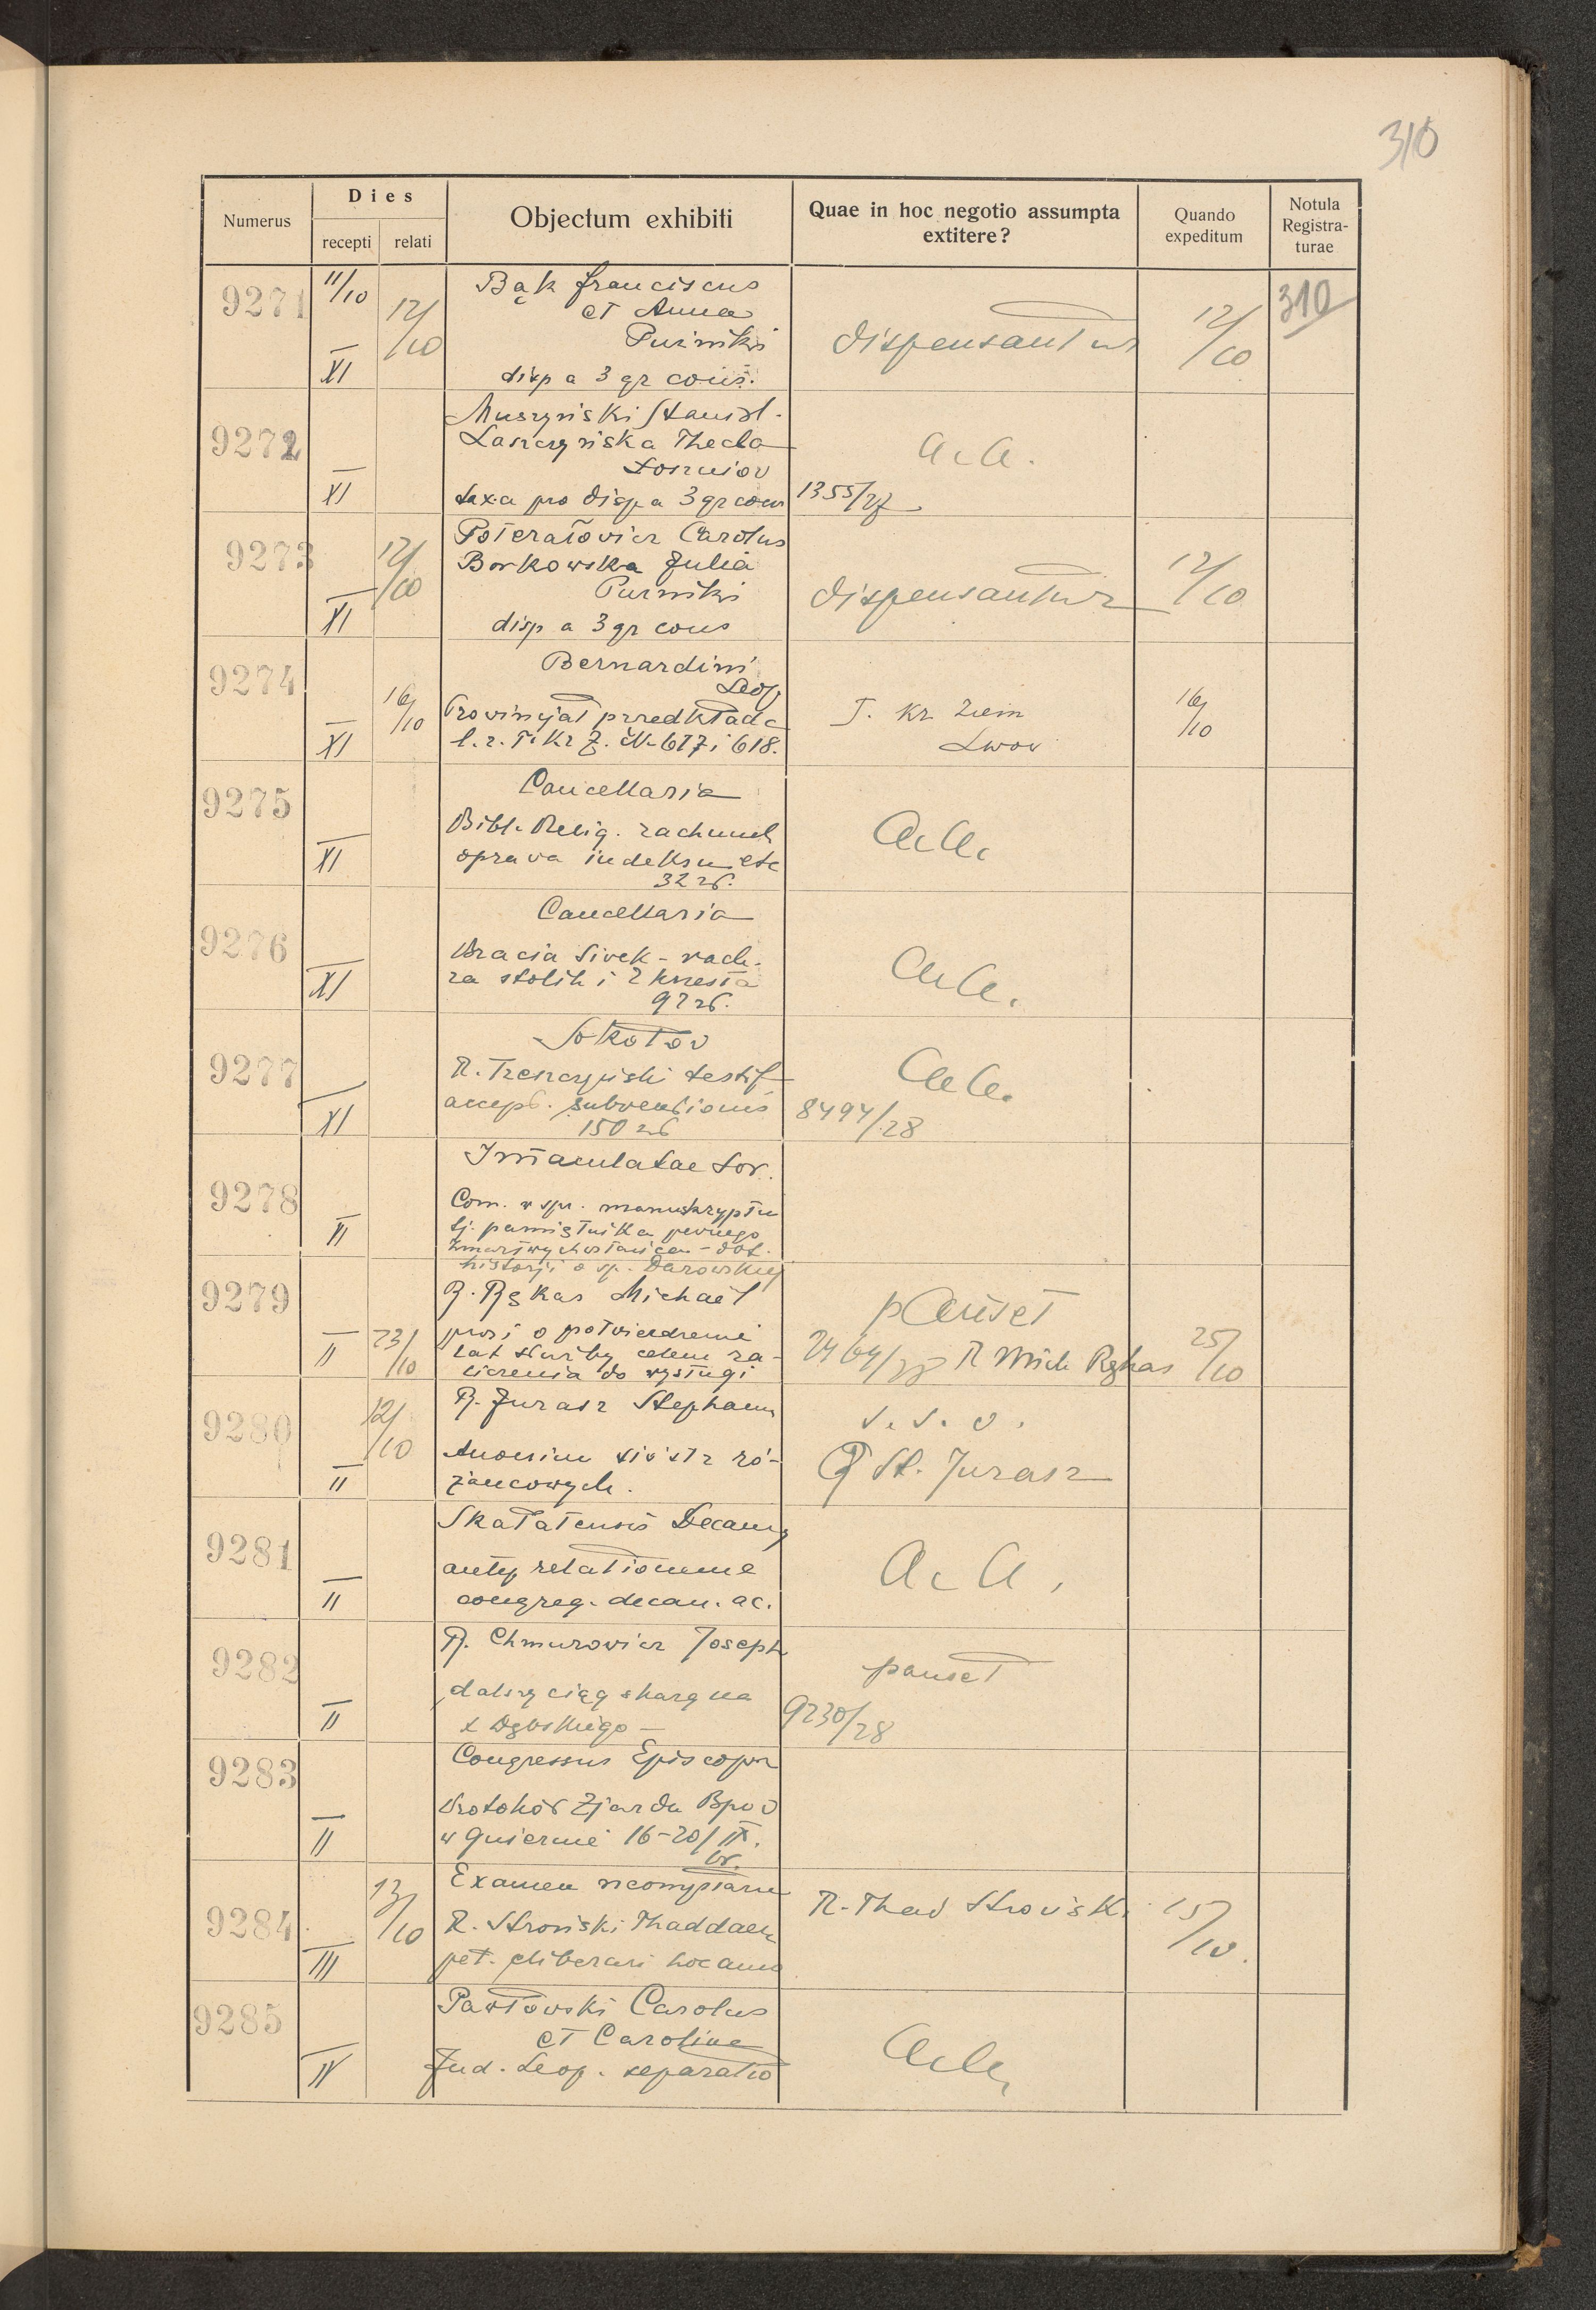 310
Numerus
Dies
recepti
relati
Objectum exhibiti
Quae in hoc negotio assumpta
extitere?
Quando
expeditum
Notula
Registra-
turae
9271
11/10
XI
12/10
Bąk Franciscus
et Anna
disp a 3 gr cons.
dispensantur
12/10
310
9272
XI
Muszyński Stanisl.
Laszczyńska Thecla
Łoszniov
taxa pro disp a 3 gr cons
a.a.
1355/27
9273
XI
12/10
Poteralovicz Carolus
Borkowska Julia
disp a 3 gr cons
dispensantur
12/10
9274
XI
16/10
Bernardini
Leop
Provincjał przedkłada
l. z. T. Kr Z. No 617 i 618.
T. Kr. Ziem
Lwov
16/10
9275
XI
Cancellaria
Bibl. Relig. rachunek
oprava indeksu etc
32 zł.
a.a.
9276
XI
Cancellaria
Bracia Sivek - rach.
za stolik i 2 krzesła
92 zł.
a.a.
9277
XI
Sokołov
R. Trzeszczyński testif
accept. subventionis
150 zł
a.a.
8494/28
9278
II
Immaculatae Sor.
Com. w spr. manuskryptu
tj. pamiętnika pewnego
Zmartwychwstańca - dot.
historji o śp. Darowskiej
9279
II
23/10
R. Rękas Michaël
prosi o potwierdzenie
lat służby celem za-
liczenia do wysługi
pauset
2464/28 R Mich Rękas
25/10
9280
II
12/10
R. Jurasz Stephanus
sióstr ró-
żańcowych.
s. s. o.
R St. Jurasz
9281
II
Skałatensis Decanus
relationem
congreg. decan. ac.
a.a.
9282
II
R. Chmurovicz Joseph
dalszy ciąg skarg na
x Dębskiego -
pauset
9230/28
9283
II
Congressus Episcopor
Protokół Zjazdu Bpów
w Gnieźnie 16-20/IX.
br.
9284
III
13/10
Examen
R. Stroński Thaddaeus
pet. eliberari hoc anno
R. Thad Stroński
15/10.
9285
IV
Pawłowski Carolus
et Carolina
Jud. Leop. separatio
a.a.